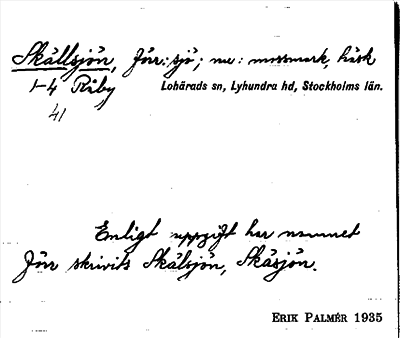 Skällsjön, förr: sjö; nu: mossmark, kärr
1-4 Riby Lohärads sn, Lyhundra hd, Stockholms län.
41
Enligt uppgift har namnet
förr skrivits Skälsjön, Skäsjön.
ERIK PALMÉR 1935